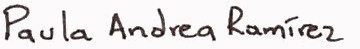 Paula Andrea Ramírez